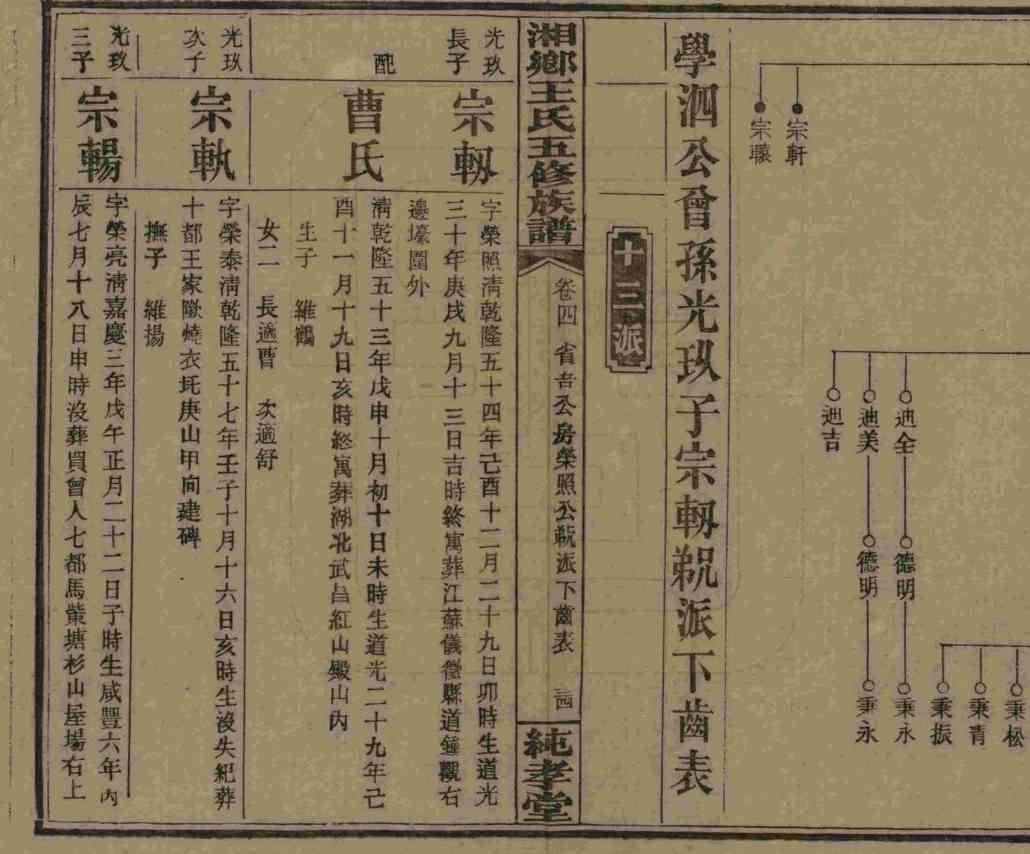 宗軒
宗轅
迪全
迪美
迪吉
德明
德明
秉松
秉青
秉振
秉永
秉永
學泗公曾孫光玖子宗軔派下齒表
十三派
湘鄉王氏五修族譜
卷四 省吾公房榮照公派下齒表
純孝堂
光玖長子
宗軔
字榮照清乾隆五十四年己酉十二月二十九日卯時生道光
三十年庚戌九月十三日吉時終寓葬江蘇儀徵縣道鐘觀右
邊壕圍外
配
曹氏
清乾隆五十三年戊申十月初十日未時生道光二十九年己
酉十一月十九日亥時終寓葬湖北武昌紅山殿山內
生子 維鶴
女二 長適曹 次適舒
光玖次子
宗軌
字榮泰清乾隆五十七年壬子十月十六日亥時生沒失紀葬
十都王家燒衣坵庚山甲向建碑
撫子 維揚
光玖三子
宗暢
字榮亮清嘉慶三年戊午正月二十二日子時生咸豐六年丙
辰七月十八日申時沒葬買曾人七都馬鬃塘杉山屋場右上